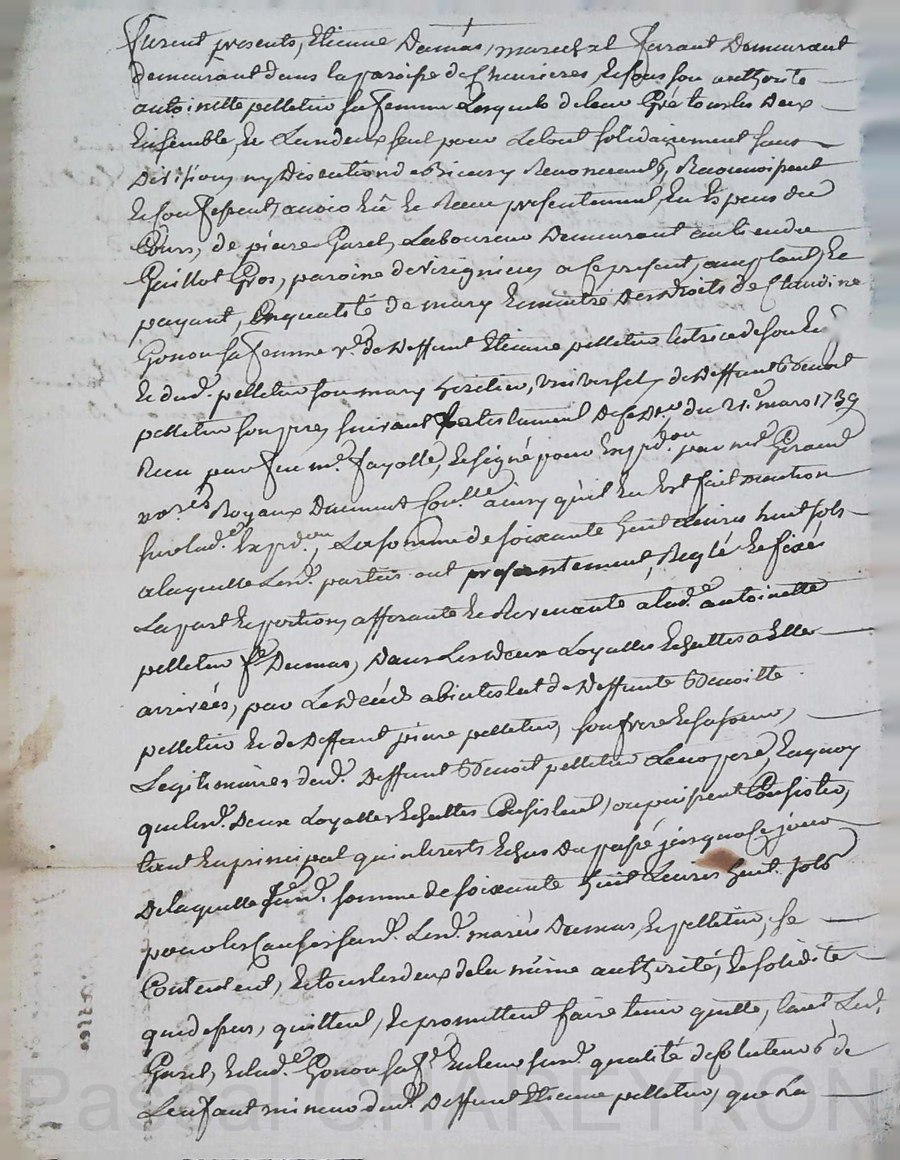 furent presents, Etienne Dumas, marechal ferrant Demeurant
demeurant dans la paroisse de Chevrieres, Et sous son authorité
antoinette pelletier sa femme Lesquels de leur Gré tous les Deux
Ensemble, Et L'un d'eux seul pour Le tout solidairement sans
Division, ny Discution d'iceux Renonceants, Reconnoissent
Et confessent, avoir Eû Et Receu presentement, En Espeus du
Cours, de pierre Garel, Laboureur Demeurant au
Guillot Gros, paroisse de a ce present, acceptant, Et
payant, En qualité de mary Et maitre Des Droits de Claudine
Gonon sa femme ve. de Deffunt Etienne pelletier tutrice de
Et dud. pelletier son mary heritier, universel, de Deffunt Benoit
pelletier son pere suivant son testament De sa Dte. du 21e. mars 1739
Receu par feu me. fayolle, Et signé pour Expdon par me. Giraud
nores. Royaux ainsy qu'il En Est fait mention
sur lad. Expdon, La somme de soixante huit Livres huit sols
a laquelle Lesd. parties ont presentement, Reglé Et fixés
La part Et portion, afferante Et Revenante a lad. antoinette
pelletier fe. Dumas, Dans Les Deux Loyalles Echuttes a Elle
arrivées, par Le Déces abintestat de Deffunte Benoitte
pelletier Et de Deffunt pierre pelletier, son frere Et sa soeur,
Legitimaires dud. Deffunt Benoit pelletier Leur pere, En quoy
que lesd. Deux Loyalles Echuttes Consistent, ou puissent Consister,
tant En principal qu'interests Echus Du passé jusqu'a ce jour
De laquelle susd. somme de soixante huit Livres huit sols
pour les Causes susd. Lesd. mariés Dumas, Et pelletier, se
Contentent, Et tous les deux de la même authorité, Et solidité
que dessus, quittent, Et promettent faire tenir quitte, tant Led.
Garel, Et lad. Gonon sa fe. En leur susd. qualité de tuteurs de
L'enfant mineur dud. Deffunt Etienne pelletier, que La
Pascal CHAREYRON